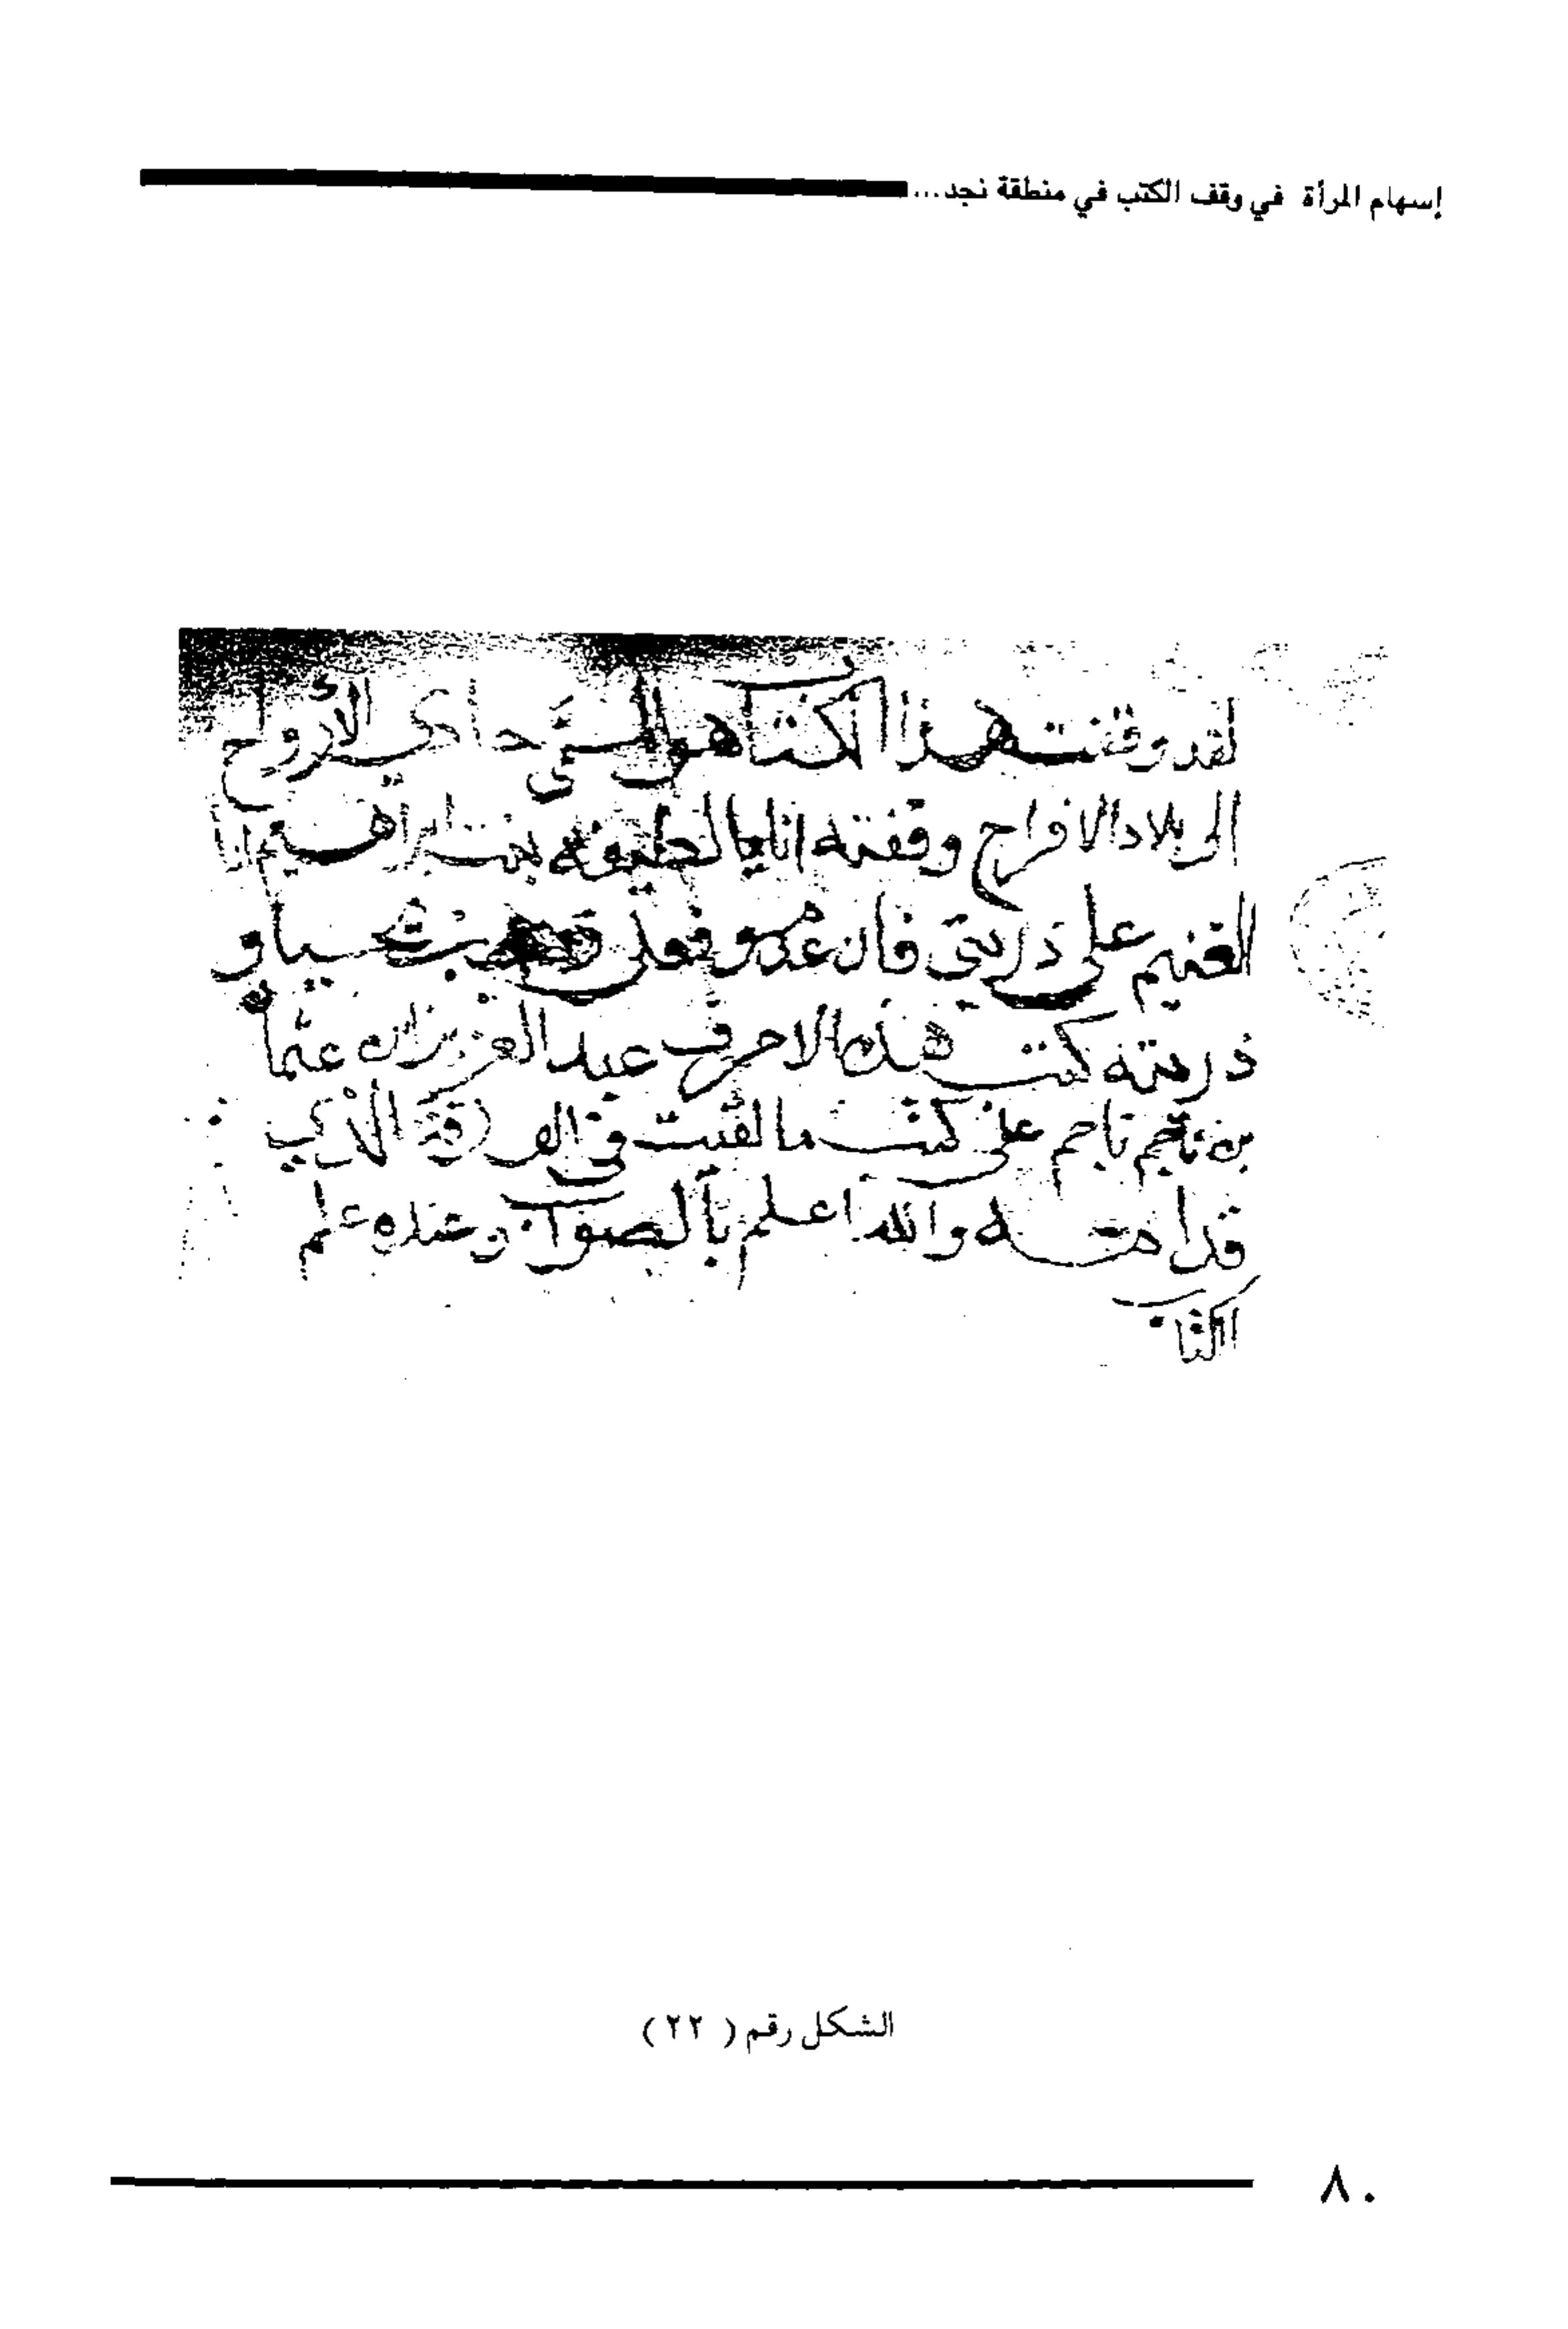 إسهام المرأة في وقف الكتب في منطقة نجد...
لقد وقفت هذا الكتاب هو المسمى حادي الأرواح
الى بلاد الافراح وقفته انا يا لطيفه بنت ابراهيم
الغنيم على ذريتي فان عدمو فعلى شسيا و
ذريته كتب هذه الاحرف عبد العزيز ان عثمان
بن ناجم على كتب ما لقيت في الورقة الاذي
قدامه والله اعلم بالصواب وعنده علم
الكتاب
الشكل رقم ( ٢٢ )
٨٠